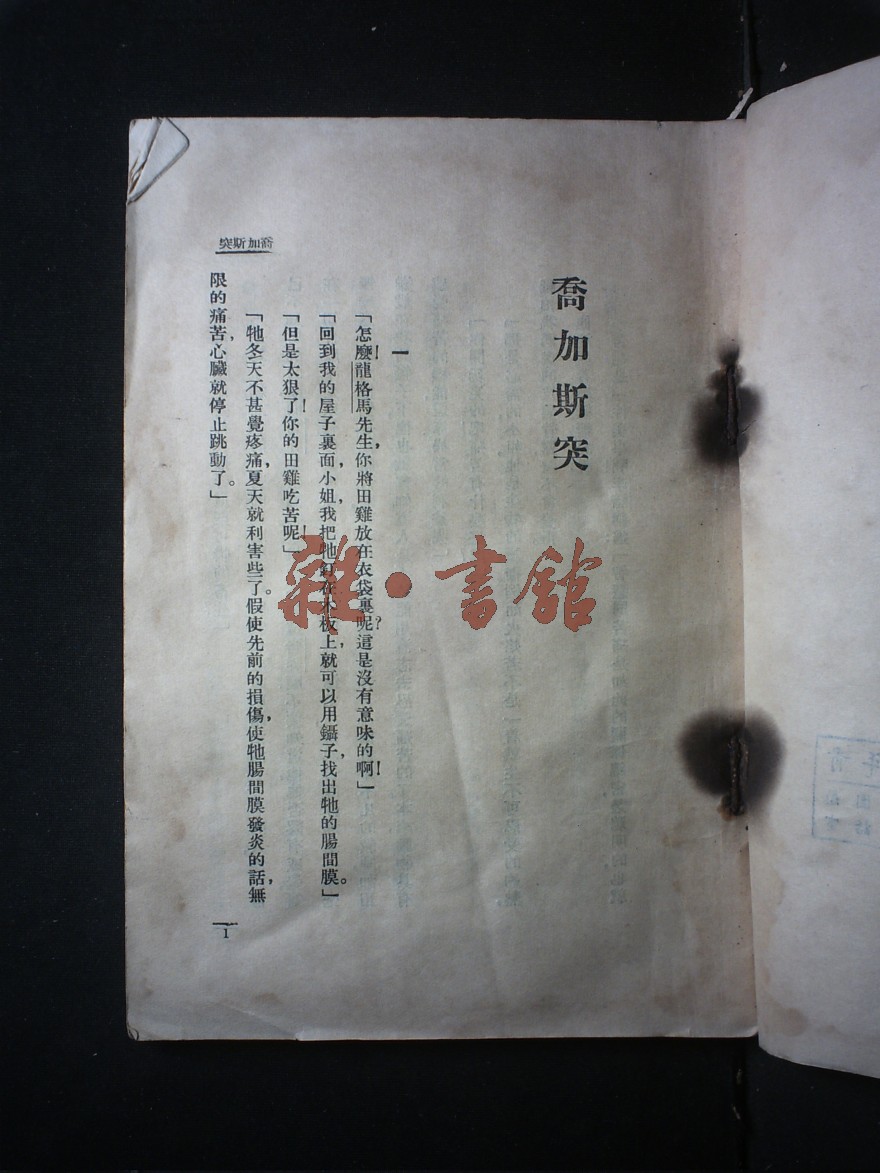 喬加斯突
喬加斯突
一
「怎麼！龍格馬先生，你將田雞放在衣袋裏呢？這是沒有意味的啊！」
「回到我的屋子裏面，小姐，我把牠釘在木板上，就可以用鑷子，找出牠的腸間膜。」
「但是太狠了！你的田雞吃苦呢！」
「牠冬天不甚覺疼痛，夏天就利害些了。假使先前的損傷，使牠腸間膜發炎的話，無
限的痛苦，心臟就停止跳動了。」
1
雜·書館